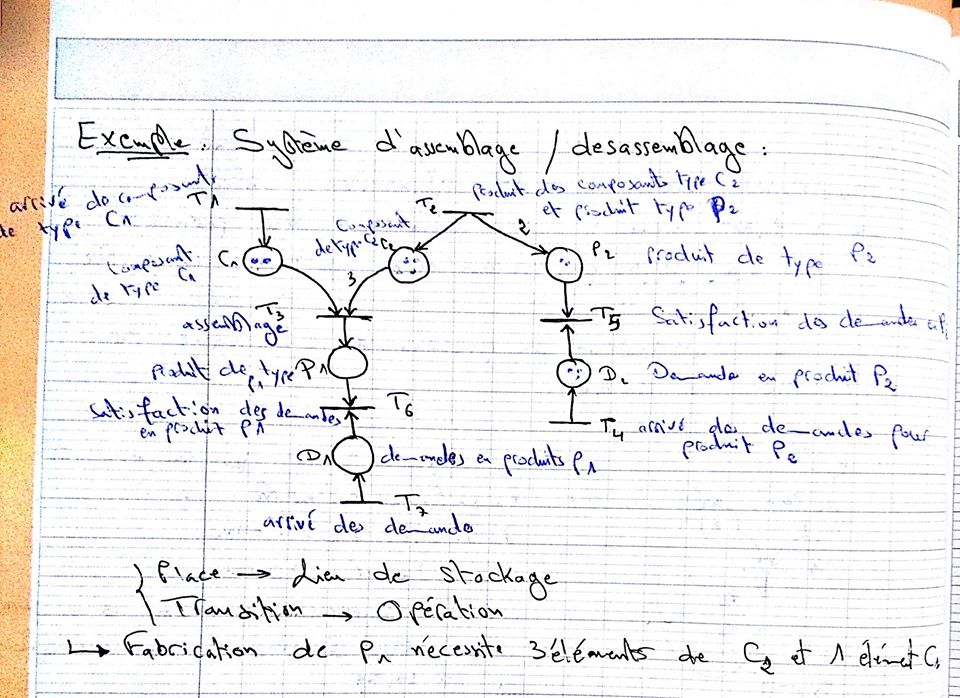 Exemple. Système d'assemblage / desassemblage :
produit des composants type C2
et produit type P2
arrivé de composant
de type C1
T1
T2
2
composant
de type C2
C2
C1
composant
de type C1
3
P2 produit de type P2
T3
assemblage
T5 Satisfaction des demandes
produit de type
P1
P1
D2 Demande en produit P2
satisfaction des demandes
en produit P1
T6
T4 arrivé des demandes pour
produit P2
D1 demandes en produits P1
T7
arrivé des demandes
Place → Lieu de stockage
Transition → Opération
↳ Fabrication de P1 nécessite 3 éléments de C2 et 1 élémet C1